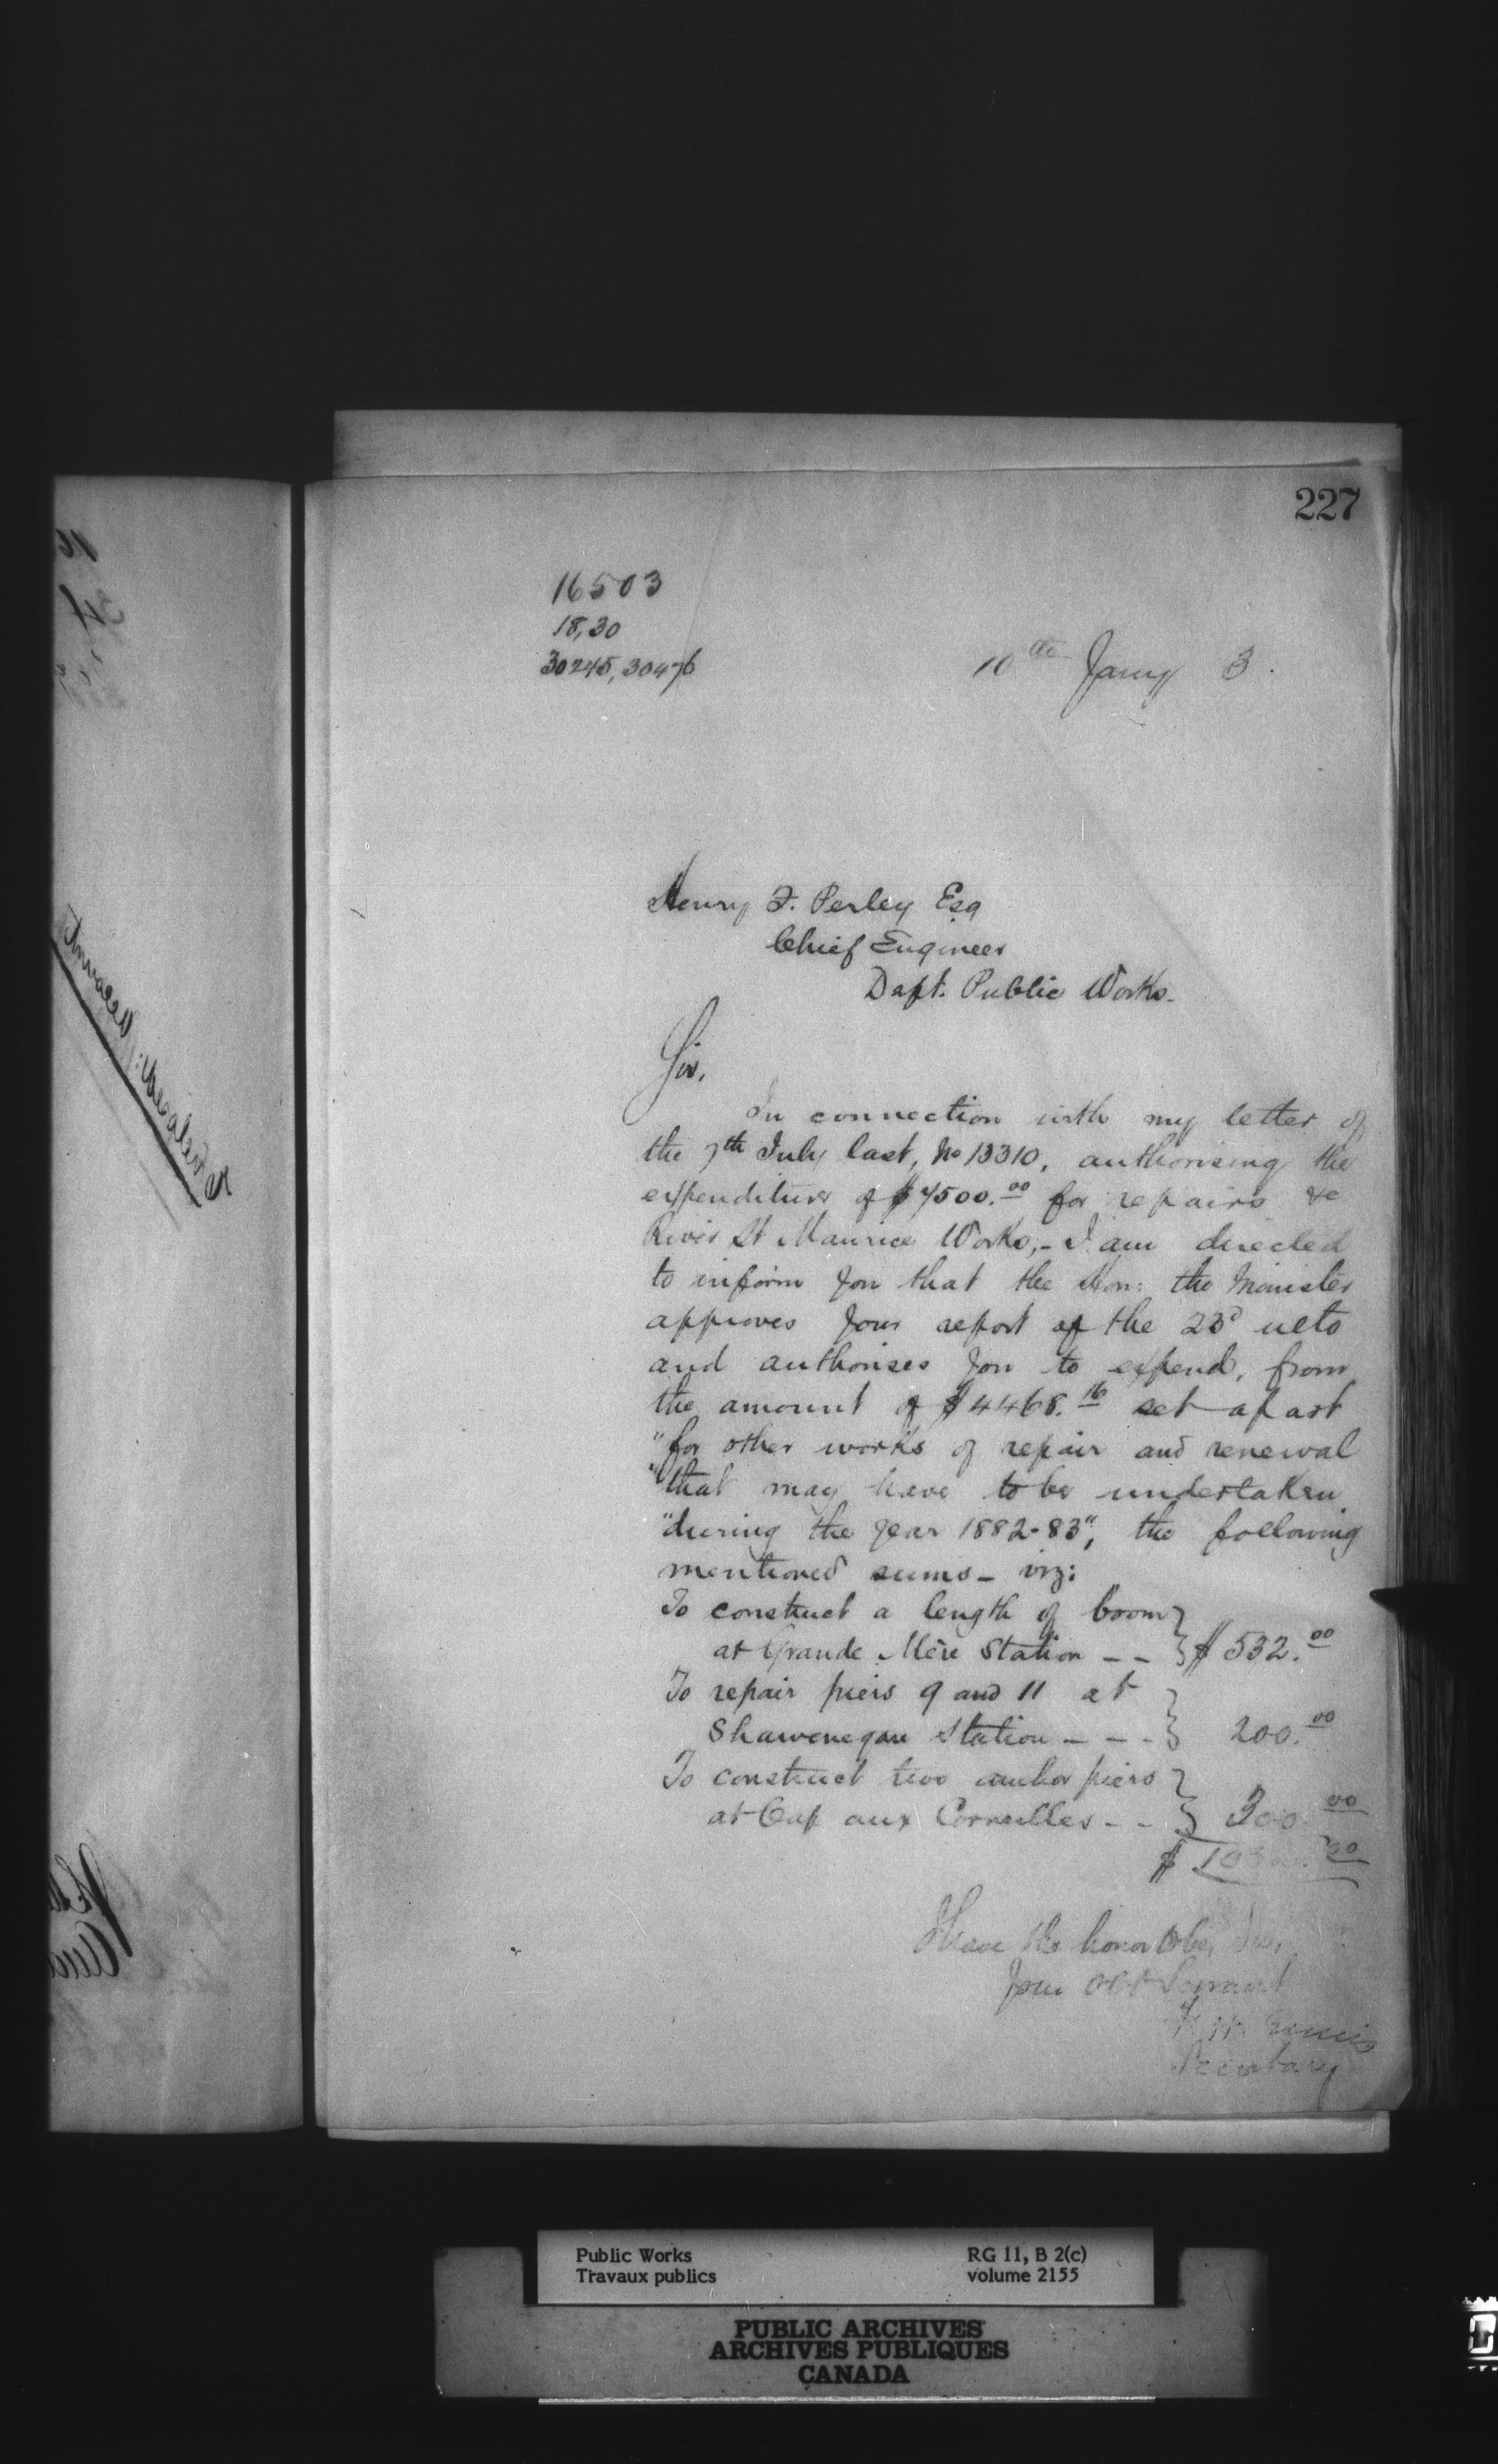 227
16503
18,30
30245, 30476
10th Jany 3.
Henry F. Perley Esq
Chief Engineer
Dept. Public Works.
Sir,
In connection with my letter of
the 7th July last, No 13310, authorising the
expenditure of $7500.00 for repairs &c
River St Maurice Works,- I am directed
to inform you that the Hon: the Minister
approves your report of the 23d ulto
and authorises you to expend, from
the amount of $4468.16 set apart
"for other works of repair and renewal
"that may have to be undertaken
"during the year 1882-83", the following
mentioned sums - viz:
To construct a length of boom
at Grande Mère Station - - } $532.00
To repair piers 9 and 11 at
Shawenegan Station - - - } 200.00
To construct two anchor piers
at Cap aux Corneilles - - } 300.00
$
I have the honor to be, Sir,
Your Obt Servant
Secretary
Public Works
Travaux publics
RG 11, B 2(c)
volume 2155
PUBLIC ARCHIVES
ARCHIVES PUBLIQUES
CANADA